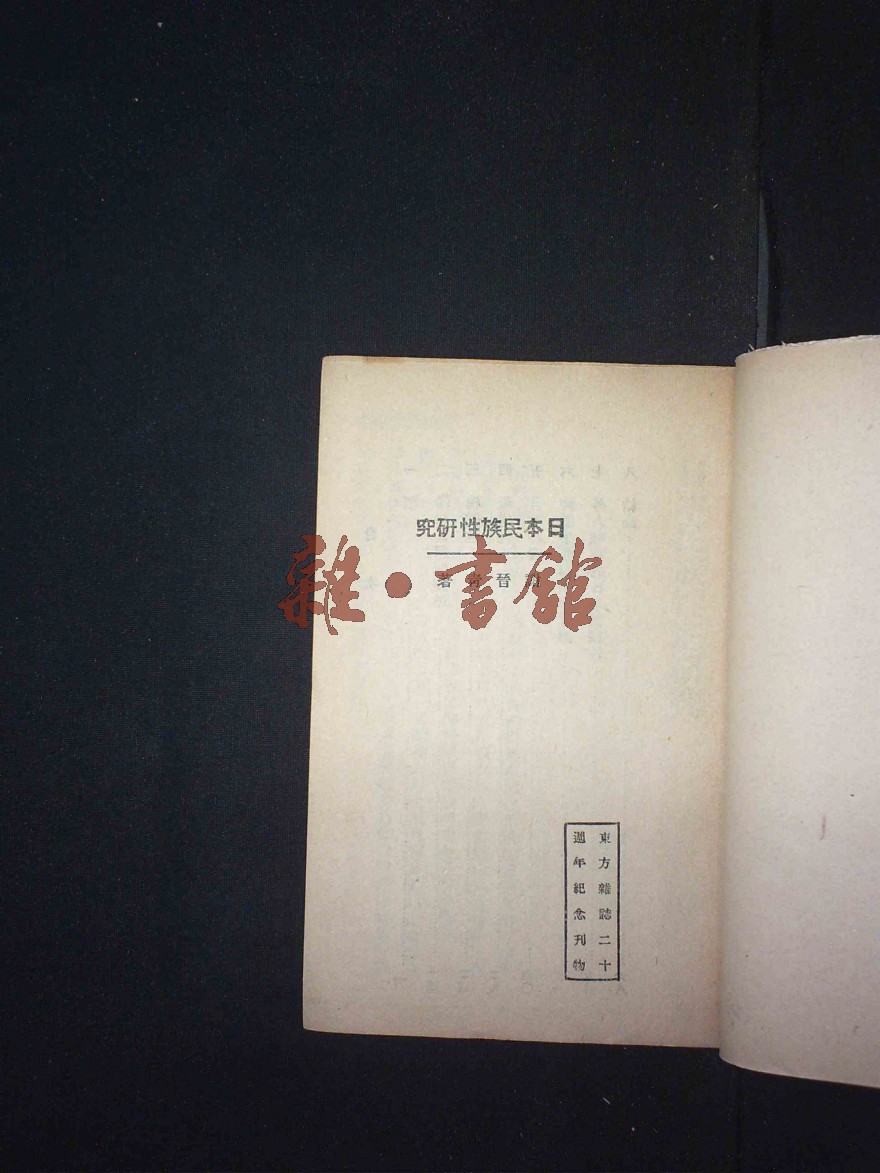 日本民族性研究
晉 著
雜·書館
東方雜誌二十
週年紀念刊物